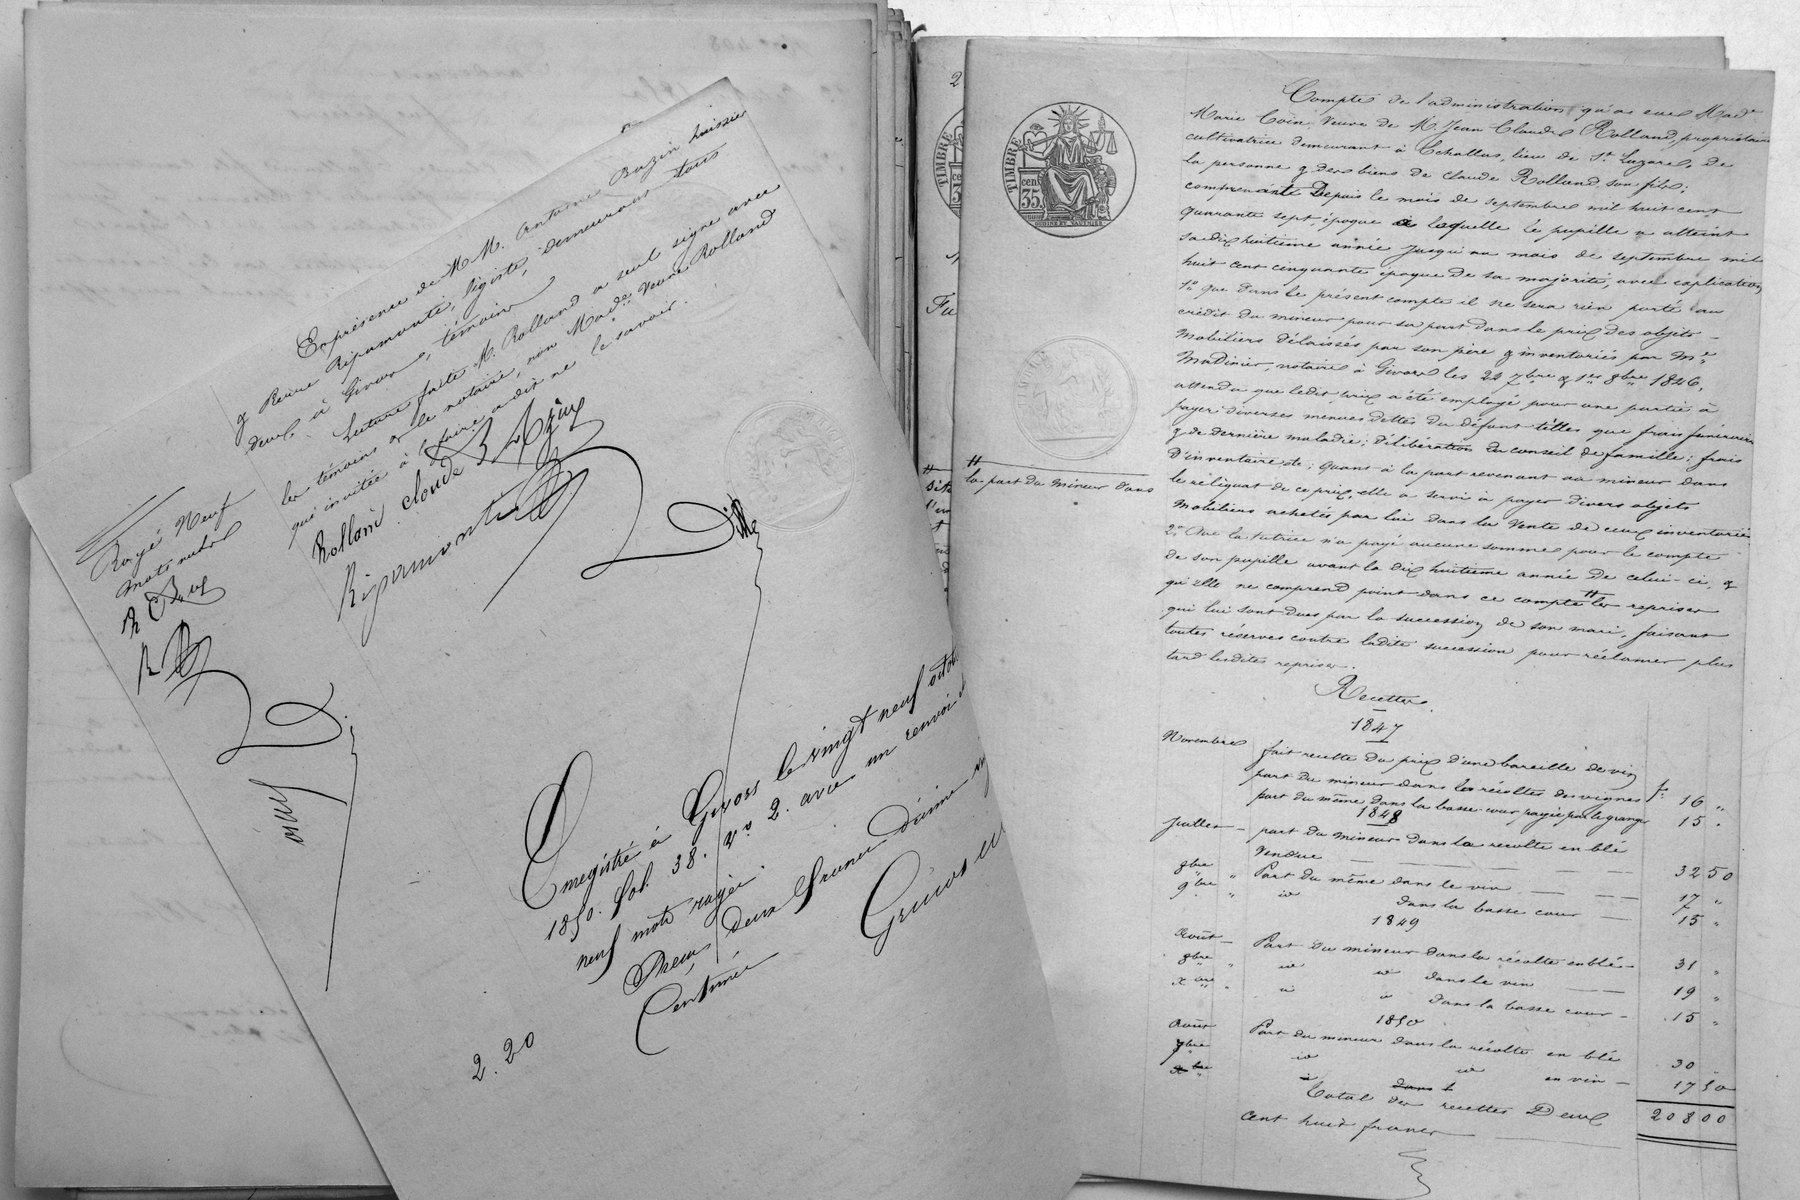 En présence de M M. Antoine Bazin huissier
& Reine Ripamonti, légiste, demeurant tous
deux à Givors, témoins
Lecture faite M. Rolland a seul signé avec
les témoins & le notaire, non Made Veuve Rolland
qui invitée à le faire a dit ne le savoir.
Rolland claude Bazin
Ripamonti
Rayé Neuf
mots nuls
R C
B
R
Enregistré à Givors le vingt neuf octo
1850. fol. 38. Vo 2. avec un renvoi &
neuf mots rayés.
Reçu deux francs dixième
Centimes
2. 20
TIMBRE
TIMBRE
cent
35.
Fu
#
la part du mineur dans
Compte de l'administration qu'a eue Made
Marie Coin, Veuve de M. Jean Claude Rolland, propriétaire
cultivatrice demeurant à Echallas, lieu de St Lazare, de
la personne & des biens de Claude Rolland son fils;
comprenant Depuis le mois de septembre mil huit cent
quarante sept, époque à laquelle le pupille a atteint
sa dix huitième année jusqu'au mois de septembre mil
huit cent cinquante époque de sa majorité, avec explication
1o que dans le présent compte il ne sera rien porté au
crédit du mineur pour sa part dans le prix des objets
mobiliers délaissés par son père & inventoriés par Me
Madinier, notaire à Givors les 22 7bre & 1er 8bre 1846,
attendu que ledit prix a été employé pour une partie à
payer diverses menues dettes du défunt telles que frais funéraires
& de dernière maladie; délibération du conseil de famille; frais
d'inventaire etc; quant à la part revenant au mineur dans
le reliquat de ce prix, elle a servi à payer divers objets
mobiliers achetés par lui dans la vente de ceux inventoriés
2o Que la tutrice n'a payé aucune somme pour le compte
de son pupille avant la dix huitième année de celui-ci, &
qu'elle ne comprend point dans ce compte # les reprises
qui lui sont dues par la succession de son mari, faisant
toutes réserves contre ladite succession pour réclamer plus
tard lesdites reprises.
Recettes
1847
Novembre fait recette du prix d'une bareille de vin
part du mineur dans les récoltes des vignes f. 16 "
part du même dans la basse cour payée par le granger 15 "
1848
Juillet - part du mineur dans la récolte en blé
vendue 32 50
8bre " Part du même dans le vin 17 "
9bre " id dans la basse cour 15 "
1849
Août - Part du mineur dans la récolte en blé 31 "
8bre " id id dans le vin 19 "
xbre " id id dans la basse cour - 15 "
1850
Août Part du mineur dans la récolte en blé 30 "
7bre id id en vin - 17 50
xbre " id dans l
Total des recettes Deux 208 00
cent huit francs